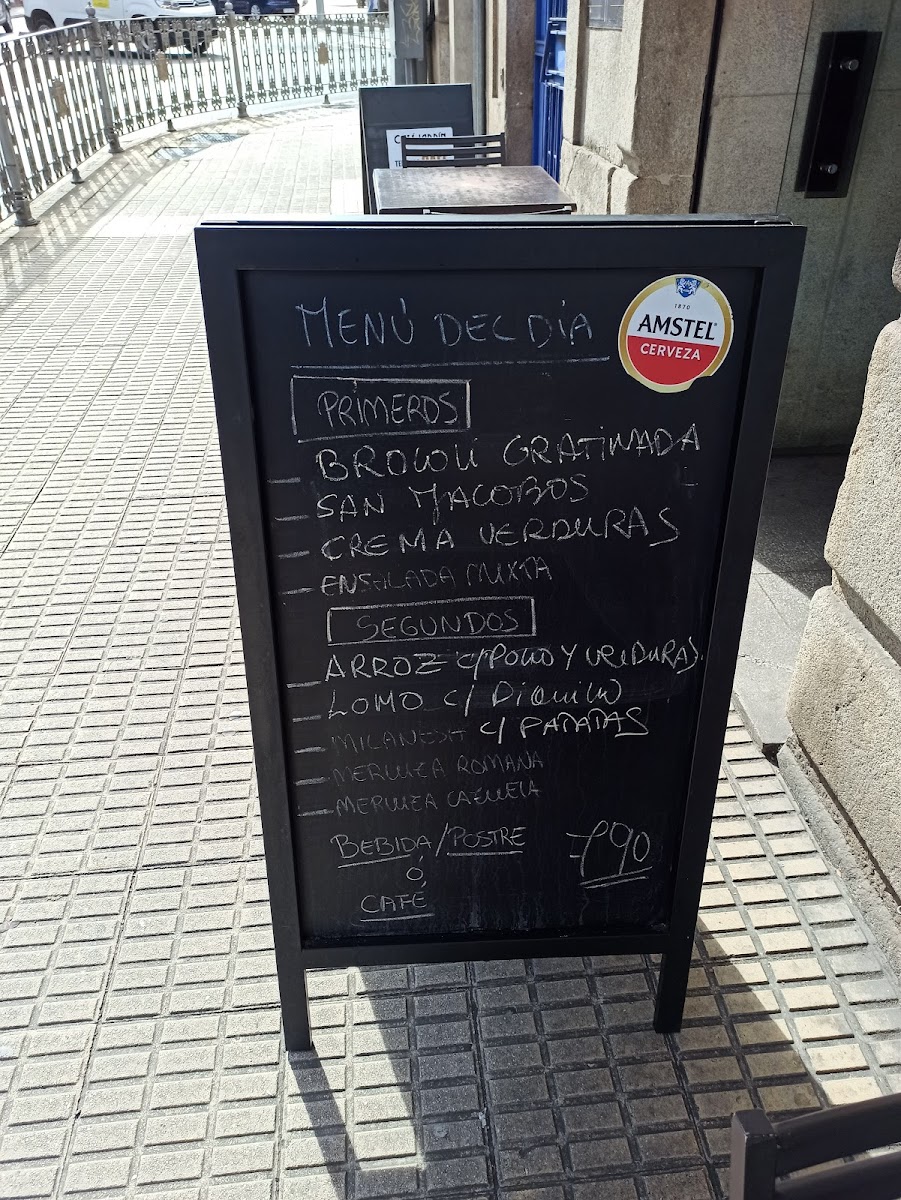 CAFÉ JARDÍN
1870
AMSTEL
CERVEZA
MENÚ DEL DÍA
PRIMEROS
GRATINADA
— SAN JACOBOS
— CREMA VERDURAS
— ENSALADA MIXTA
SEGUNDOS
ARROZ C/POLLO Y VERDURAS.
— LOMO C/
— MILANESA C/ PATATAS
— MERLUZA ROMANA
— MERLUZA CAZUELA
BEBIDA/POSTRE
Ó
CAFÉ
7'90